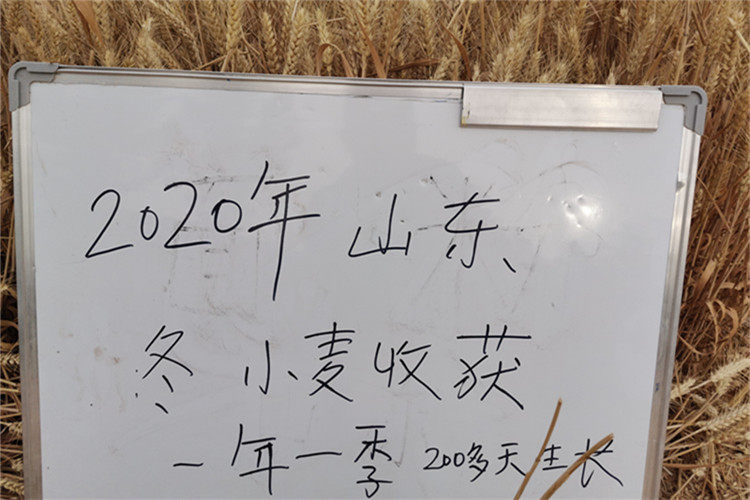 2020年 山东
冬小麦收获
一年一季 200多天生长